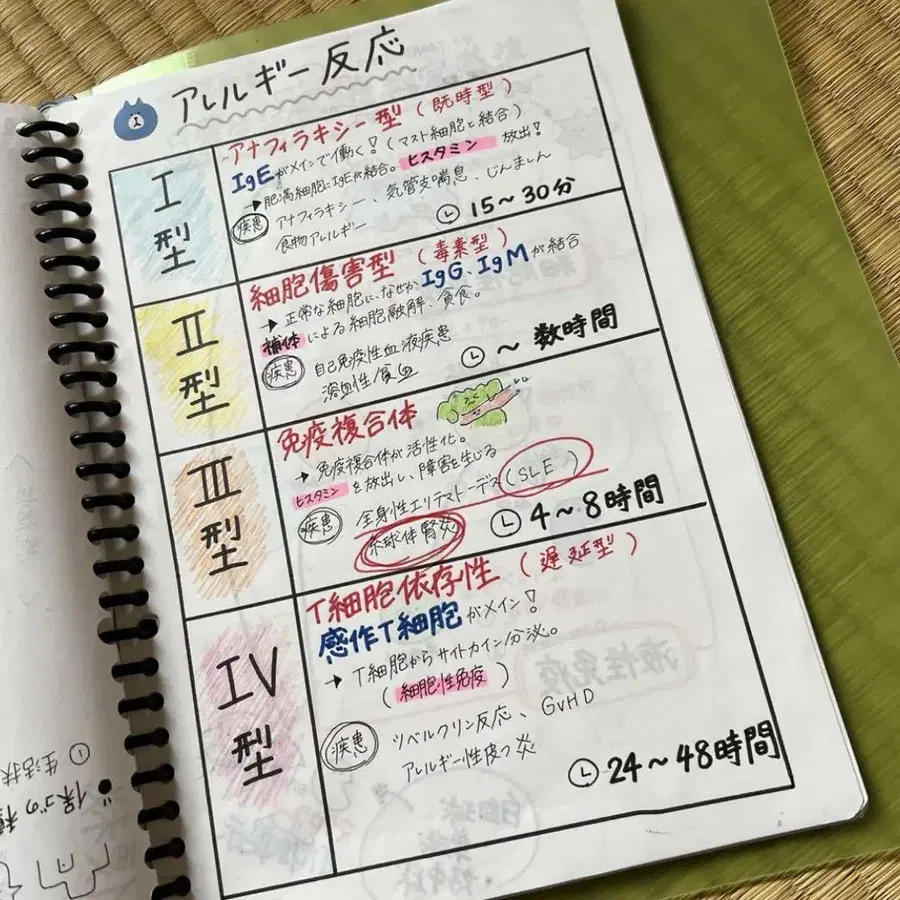 アレルギー反応
Ⅰ型
アナフィラキシー型(既時型)
IgEがメインで働く!(マスト細胞と結合)
→肥満細胞にIgEが結合。ヒスタミン 放出!
疾患 アナフィラキシー、気管支喘息、じんましん
食物アレルギー 15〜30分
Ⅱ型
細胞傷害型(毒素型)
→正常な細胞に、なぜかIgG、IgMが結合
補体による細胞融解、貪食。
疾患 自己免疫性血液疾患
溶血性貧血 〜数時間
Ⅲ型
免疫複合体
→免疫複合体が活性化。
ヒスタミンを放出し、障害を生じる
疾患 全身性エリテマトーデス(SLE)
糸球体腎炎 4〜8時間
Ⅳ型
T細胞依存性(遅延型)
感作T細胞がメイン!
→T細胞からサイトカイン分泌。
(細胞性免疫)
疾患 ツベルクリン反応、GvHD
アレルギー性皮フ炎
24〜48時間
① 生活扶
液性免疫